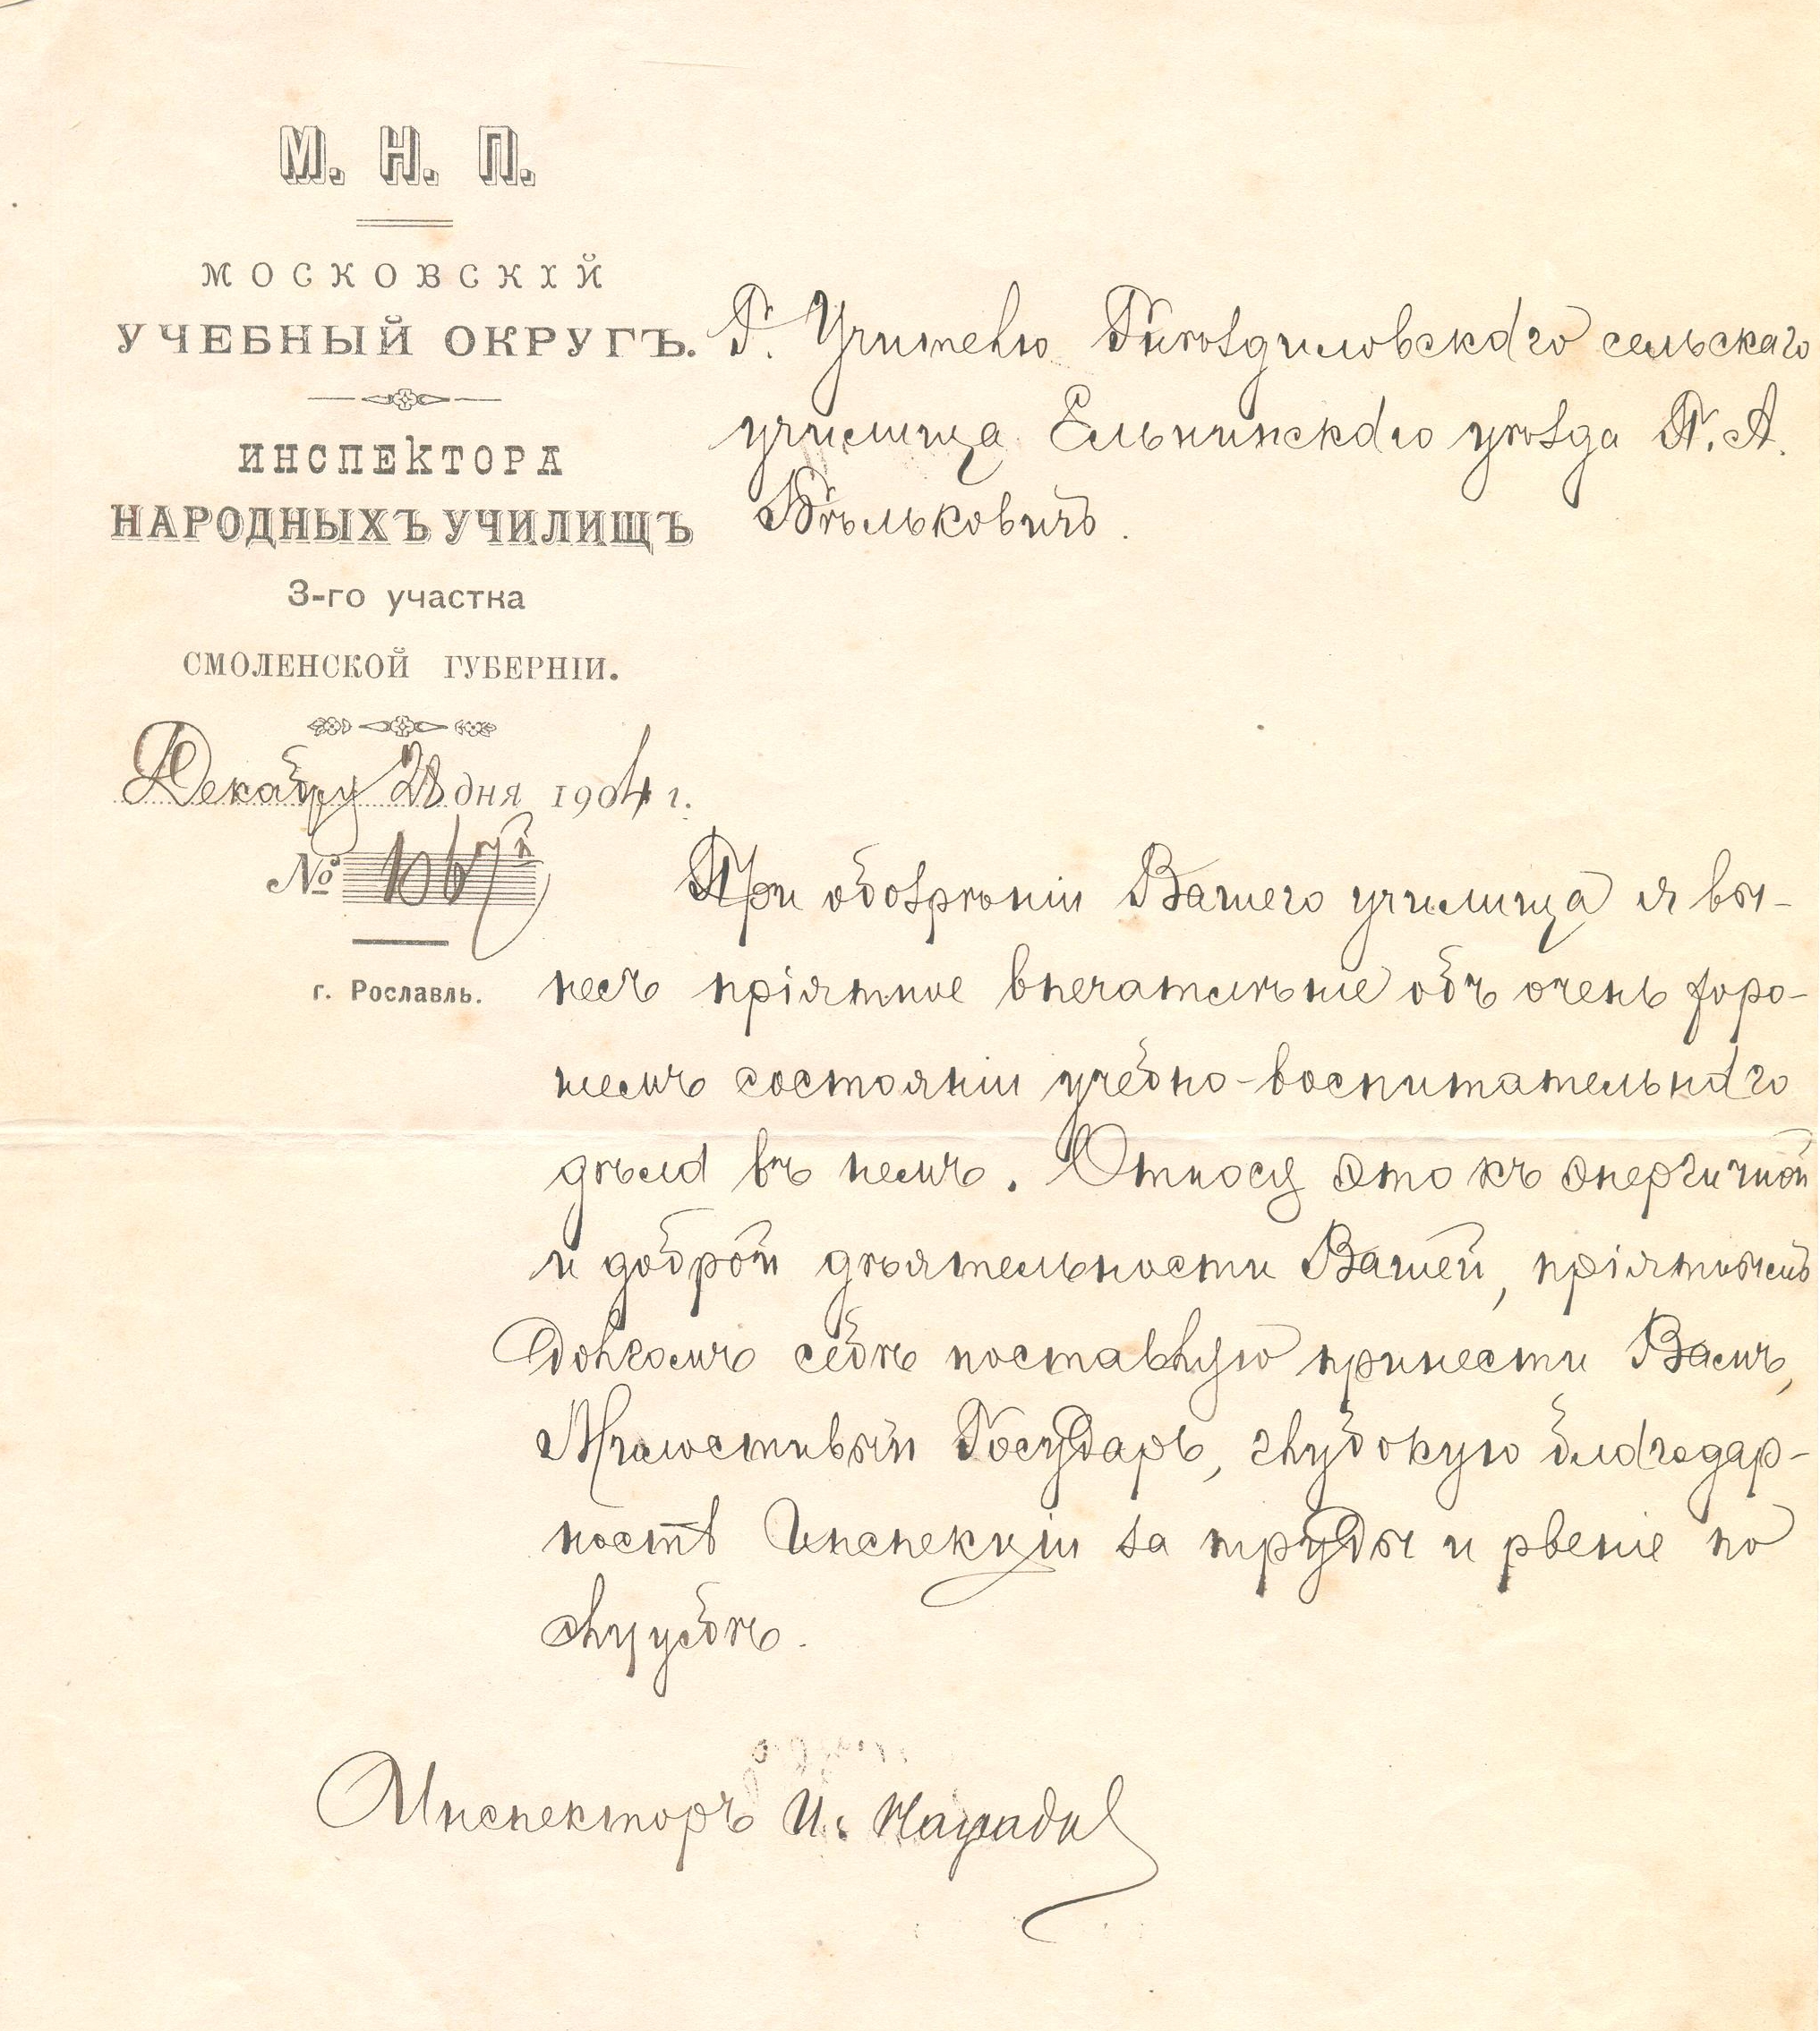 М. Н. П.
МОСКОВСКІЙ
УЧЕБНЫЙ ОКРУГЪ.
ИНСПЕКТОРА
НАРОДНЫХЪ УЧИЛИЩЪ
3-го участка
СМОЛЕНСКОЙ ГУБЕРНІИ.
Декабря 28 дня 1904 г.
№
г. Рославль.
Г. Учителю сельскаго
училища Ельнинскаго уѣзда П. А.
Бѣльковичъ.
При обозрѣніи Вашего училища я вы-
несъ пріятное впечатлѣніе объ очень хоро-
шемъ состояніи учебно-воспитательнаго
дѣла въ немъ. Отношу это къ энергичной
и доброй дѣятельности Вашей, пріятнымъ
долгомъ себѣ поставляю принести Вамъ,
Милостивый Государь, глубокую благодар-
ность Инспекціи за труды и рвеніе по
службѣ.
Инспекторъ И.